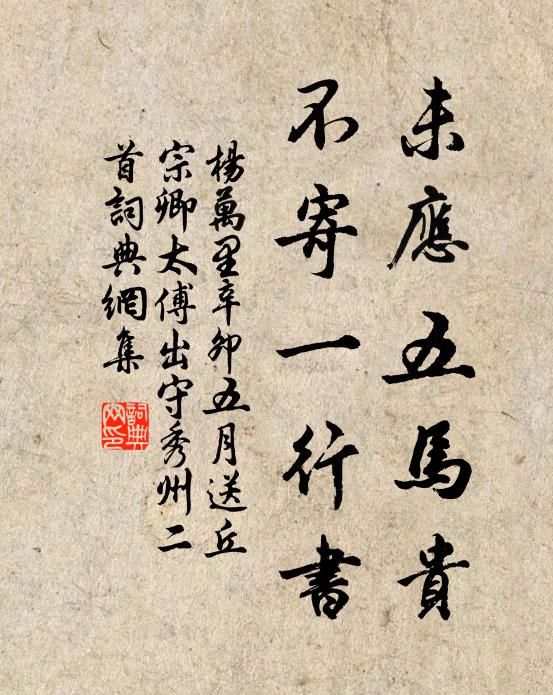 未應五馬貴
不寄一行書
楊萬里辛卯五月送丘
宗卿太傅出守秀州二
首詞典網集
詞典網印